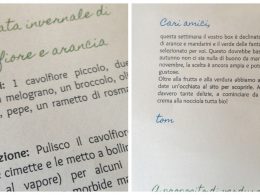 ata invernale di
fiore e arancia
1 cavolfiore piccolo, due
melograno, un broccolo, oli
, pepe, un rametto di rosma
zione: Pulisco il cavolfiore
cimette e le metto a bollir
al vapore) per alcuni
morbide ma
Cari amici,
questa settimana il vostro box è declinato
di arance e mandarini e il verde delle fatte
selezionato per voi. Questo dovrebbe bas
autunno non ci sia nulla di buono da ma
novembre, la scelta è ancora ampia e pot
gustose.
Oltre alla frutta e alla verdura abbiamo a
date un'occhiata al sito per scoprirle. A
davvero tante delizie, a cominciare da o
crema alla nocciola tutta bio!
tom
A proposito di verdu